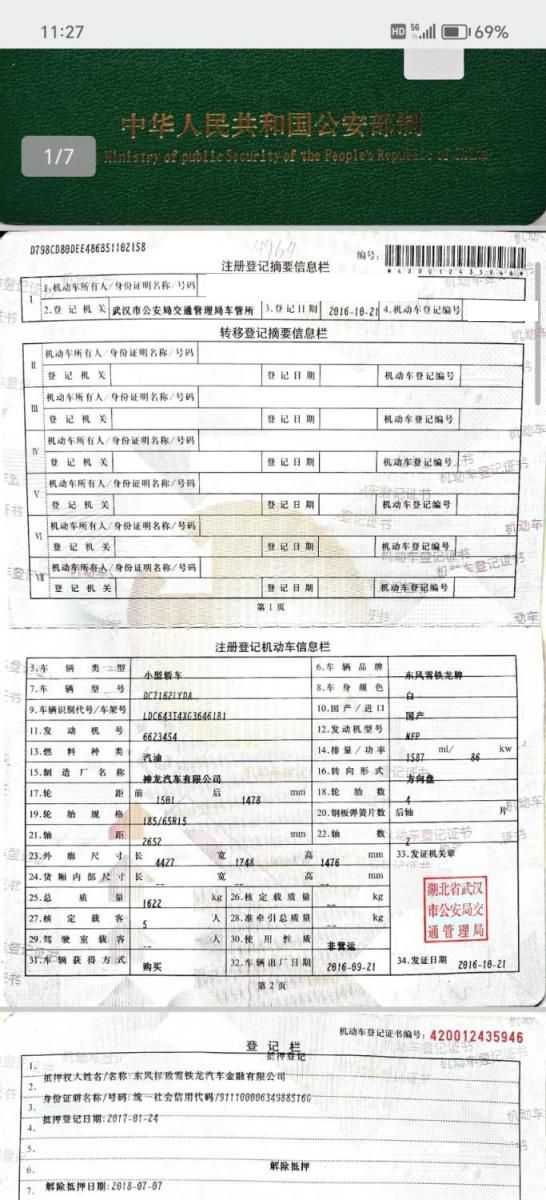 11:27
HD 5G 69%
中华人民共和国公安部制
1/7
Ministry of public Security of the People's Republic of China
D798CD80DEE486B51102158
编号:
*420012435946*
注册登记摘要信息栏
I
1.机动车所有人/身份证明名称/号码
2.登记机关 武汉市公安局交通管理局车管所 3.登记日期 2016-10-21 4.机动车登记编号
转移登记摘要信息栏
II
机动车所有人/身份证明名称/号码
登记机关 登记日期 机动车登记编号
III
机动车所有人/身份证明名称/号码
登记机关 登记日期 机动车登记编号
IV
机动车所有人/身份证明名称/号码
登记机关 登记日期 机动车登记编号
V
机动车所有人/身份证明名称/号码
登记机关 登记日期 机动车登记编号
VI
机动车所有人/身份证明名称/号码
登记机关 登记日期 机动车登记编号
VII
机动车所有人/身份证明名称/号码
登记机关 登记日期 机动车登记编号
第1页
注册登记机动车信息栏
5.车辆类型 小型轿车 6.车辆品牌 东风雪铁龙牌
7.车辆型号 DC7162LYDA 8.车身颜色 白
9.车辆识别代号/车架号 LDC643T4XG3646181 10.国产/进口 国产
11.发动机号 6623454 12.发动机型号 NFP
13.燃料种类 汽油 14.排量/功率 1587 ml/ 86 kw
15.制造厂名称 神龙汽车有限公司 16.转向形式 方向盘
17.轮距 前 1501 后 1478 mm 18.轮胎数 4
19.轮胎规格 185/65R15 20.钢板弹簧片数 后轴 片
21.轴距 2652 mm 22.轴数 2
23.外廓尺寸 长 4427 宽 1748 高 1476 mm 33.发证机关章
24.货厢内部尺寸 长 -- 宽 -- 高 -- mm
25.总质量 1622 kg 26.核定载质量 -- kg
27.核定载客 5 人 28.准牵引总质量 -- kg
29.驾驶室载客 -- 人 30.使用性质 非营运
31.车辆获得方式 购买 32.车辆出厂日期 2016-09-21 34.发证日期 2016-10-21
湖北省武汉
市公安局交
通管理局
第2页
机动车登记证书编号:420012435946
登记栏
抵押登记
1.
抵押权人姓名/名称:东风标致雪铁龙汽车金融有限公司
2.
身份证明名称/号码:统一社会信用代码/91110000634988516G
3.
抵押登记日期:2017-01-24
4.
5.
6.
解除抵押
7.
解除抵押日期:2018-07-07